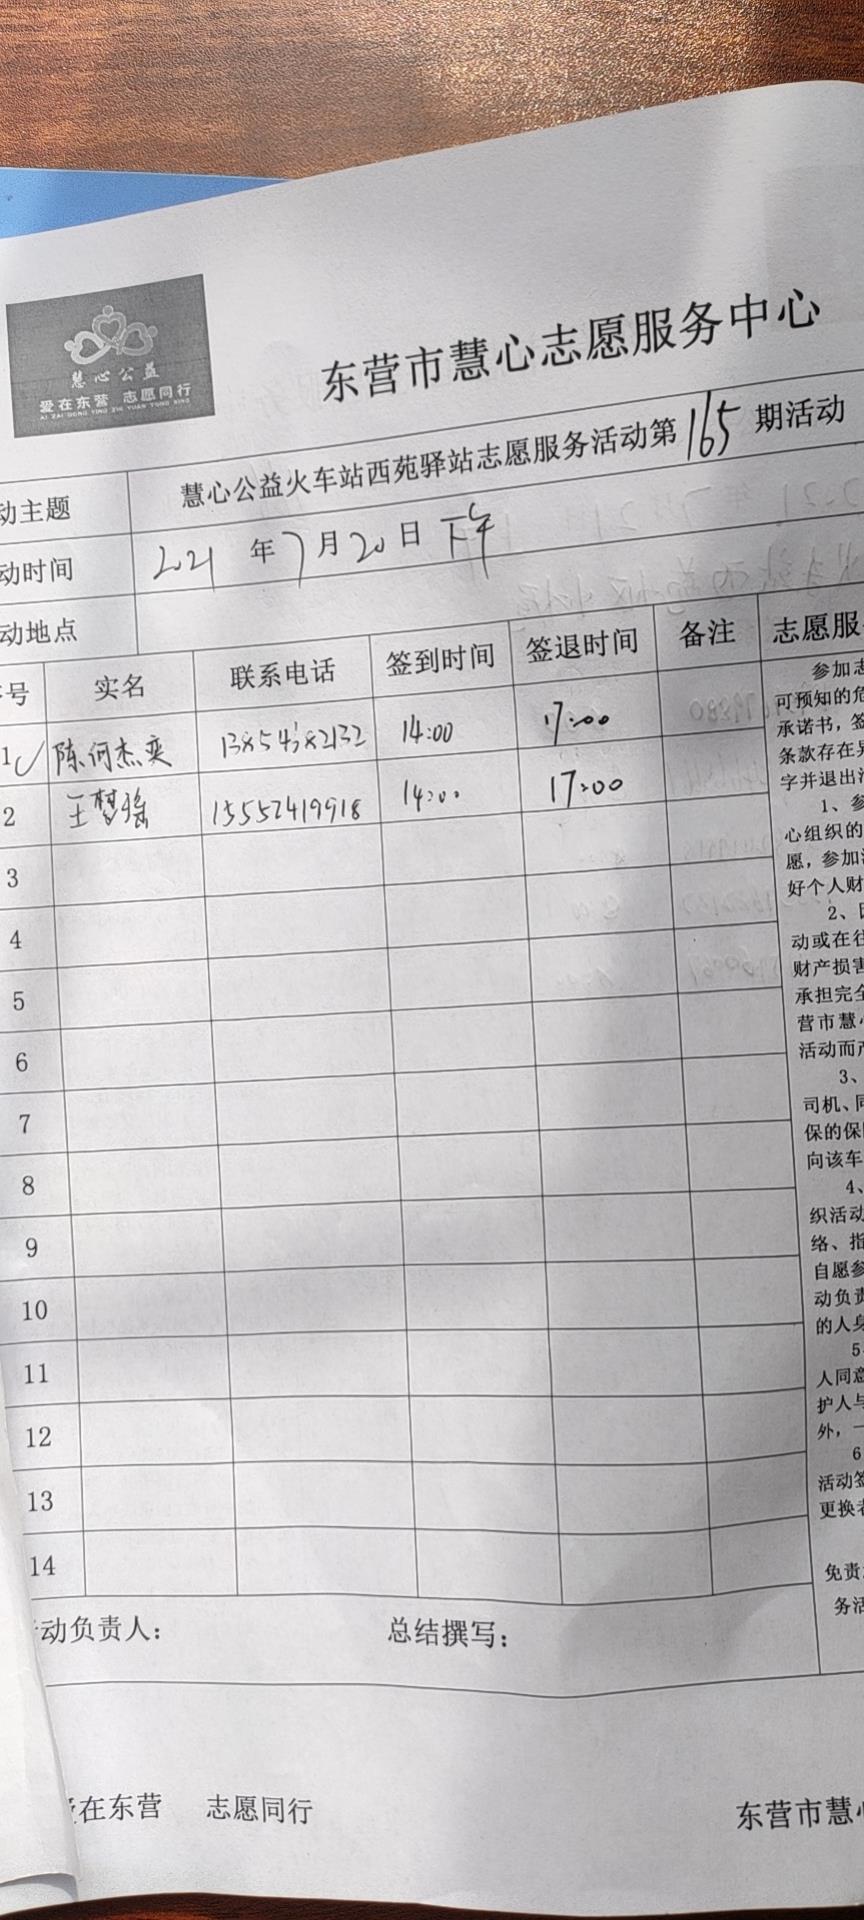 慧心公益
爱在东营 志愿同行
AI ZAI DONG YING ZHI YUAN TONG XING
东营市慧心志愿服务中心
动主题 慧心公益火车站西苑驿站志愿服务活动第165期活动
动时间 2021年7月20日 下午
动地点
号 实名 联系电话 签到时间 签退时间 备注 志愿服
1 陈何杰奕 14:00 17:00
2 王梦瑶 15552419918 14:00 17:00
3
4
5
6
7
8
9
10
11
12
13
14
参加志
可预知的危
承诺书,签
条款存在异
字并退出活
1、参
心组织的
愿,参加活
好个人财
2、因
动或在往
财产损害
承担完全
营市慧心
活动而产
3、
司机、同
保的保险
向该车
4、
织活动
络、指
自愿参
动负责
的人身
5、
人同意
护人与
外,一
6
活动签
更换者
免责
务活
动负责人: 总结撰写:
爱在东营 志愿同行 东营市慧心